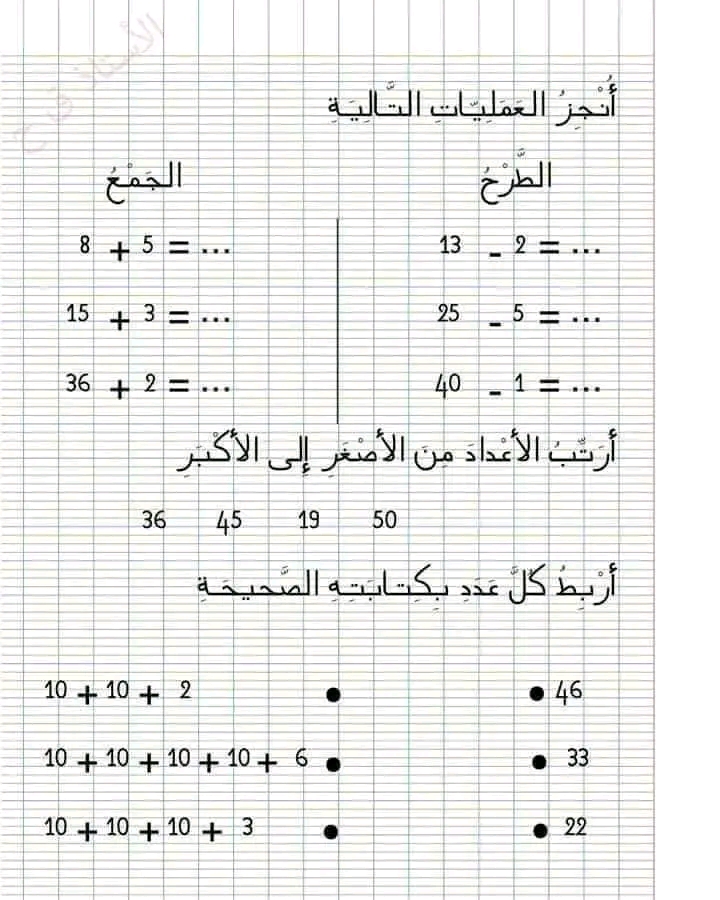 الأستاذ ق ح
أُنْجِزُ العَمَلِيّاتِ التَّالِيَةِ
الطَّرْحُ الجَمْعُ
8 + 5 = ... 13 - 2 = ...
15 + 3 = ... 25 - 5 = ...
36 + 2 = ... 40 - 1 = ...
أُرَتِّبُ الأَعْدادَ مِنَ الأَصْغَرِ إِلى الأَكْبَرِ
36 45 19 50
أَرْبِطُ كُلَّ عَدَدِ بِكِتابَتِهِ الصَّحيحَةِ
10 + 10 + 2 • • 46
10 + 10 + 10 + 10 + 6 • • 33
10 + 10 + 10 + 3 • • 22